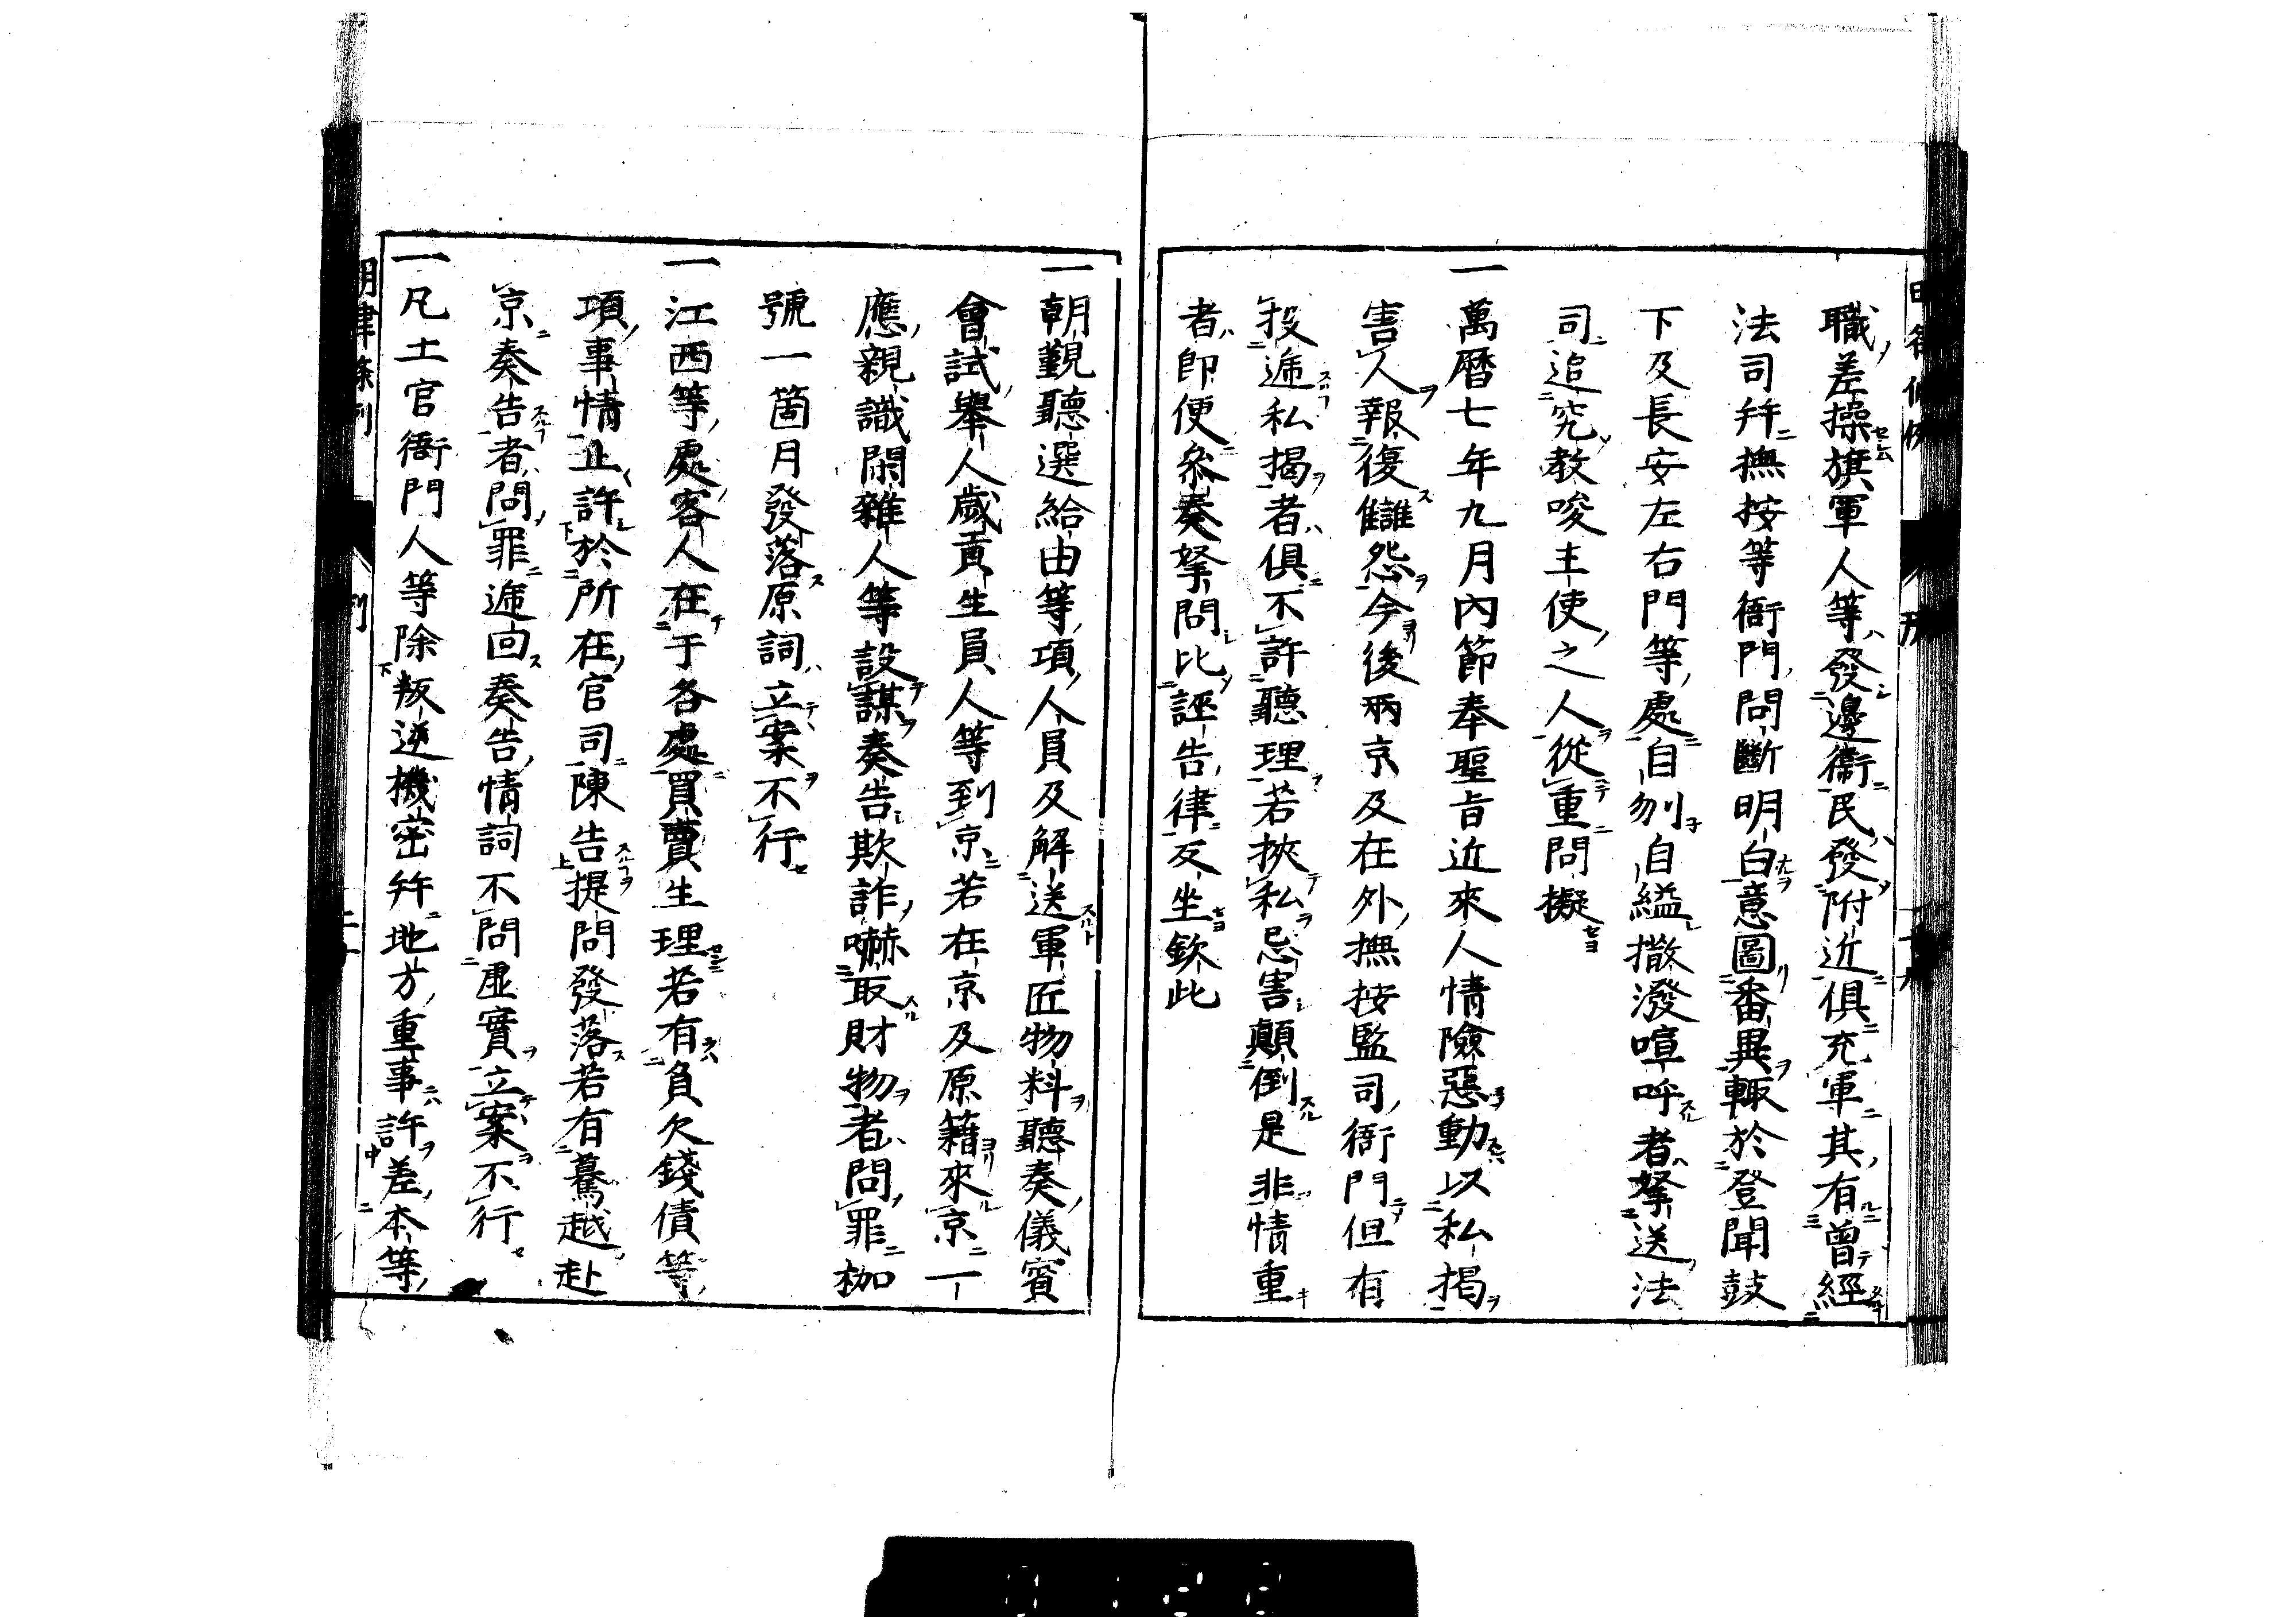 職差操旗軍人等發邊衞民發附近俱充軍其有曾經
法司幷撫按等衙門問斷明白意圖番異輙於登聞鼓
下及長安左右門等處自刎自縊撒潑喧呼者拏送法
司追究教唆主使之人從重問擬
一萬曆七年九月內節奉聖旨近來人情險惡動以私揭
害人報復讎怨今後兩京及在外撫按監司衙門但有
投遞私揭者俱不許聽理若挾私忌害顛倒是非情重
者即便叅奏拏問比誣告律反坐欽此
一朝覲聽選給由等項人員及解送軍匠物料聽奏儀賓
會試舉人歲貢生員人等到京若在京及原籍來京一
應親識閑雜人等設謀奏告欺詐嚇取財物者問罪枷
號一箇月發落原詞立案不行
一江西等處客人在于各處買賣生理若有負欠錢債等
項事情止許於所在官司陳告提問發落若有驀越赴
京奏告者問罪遞回奏告情詞不問虛實立案不行
一凡土官衙門人等除叛逆機密幷地方重事許差本等